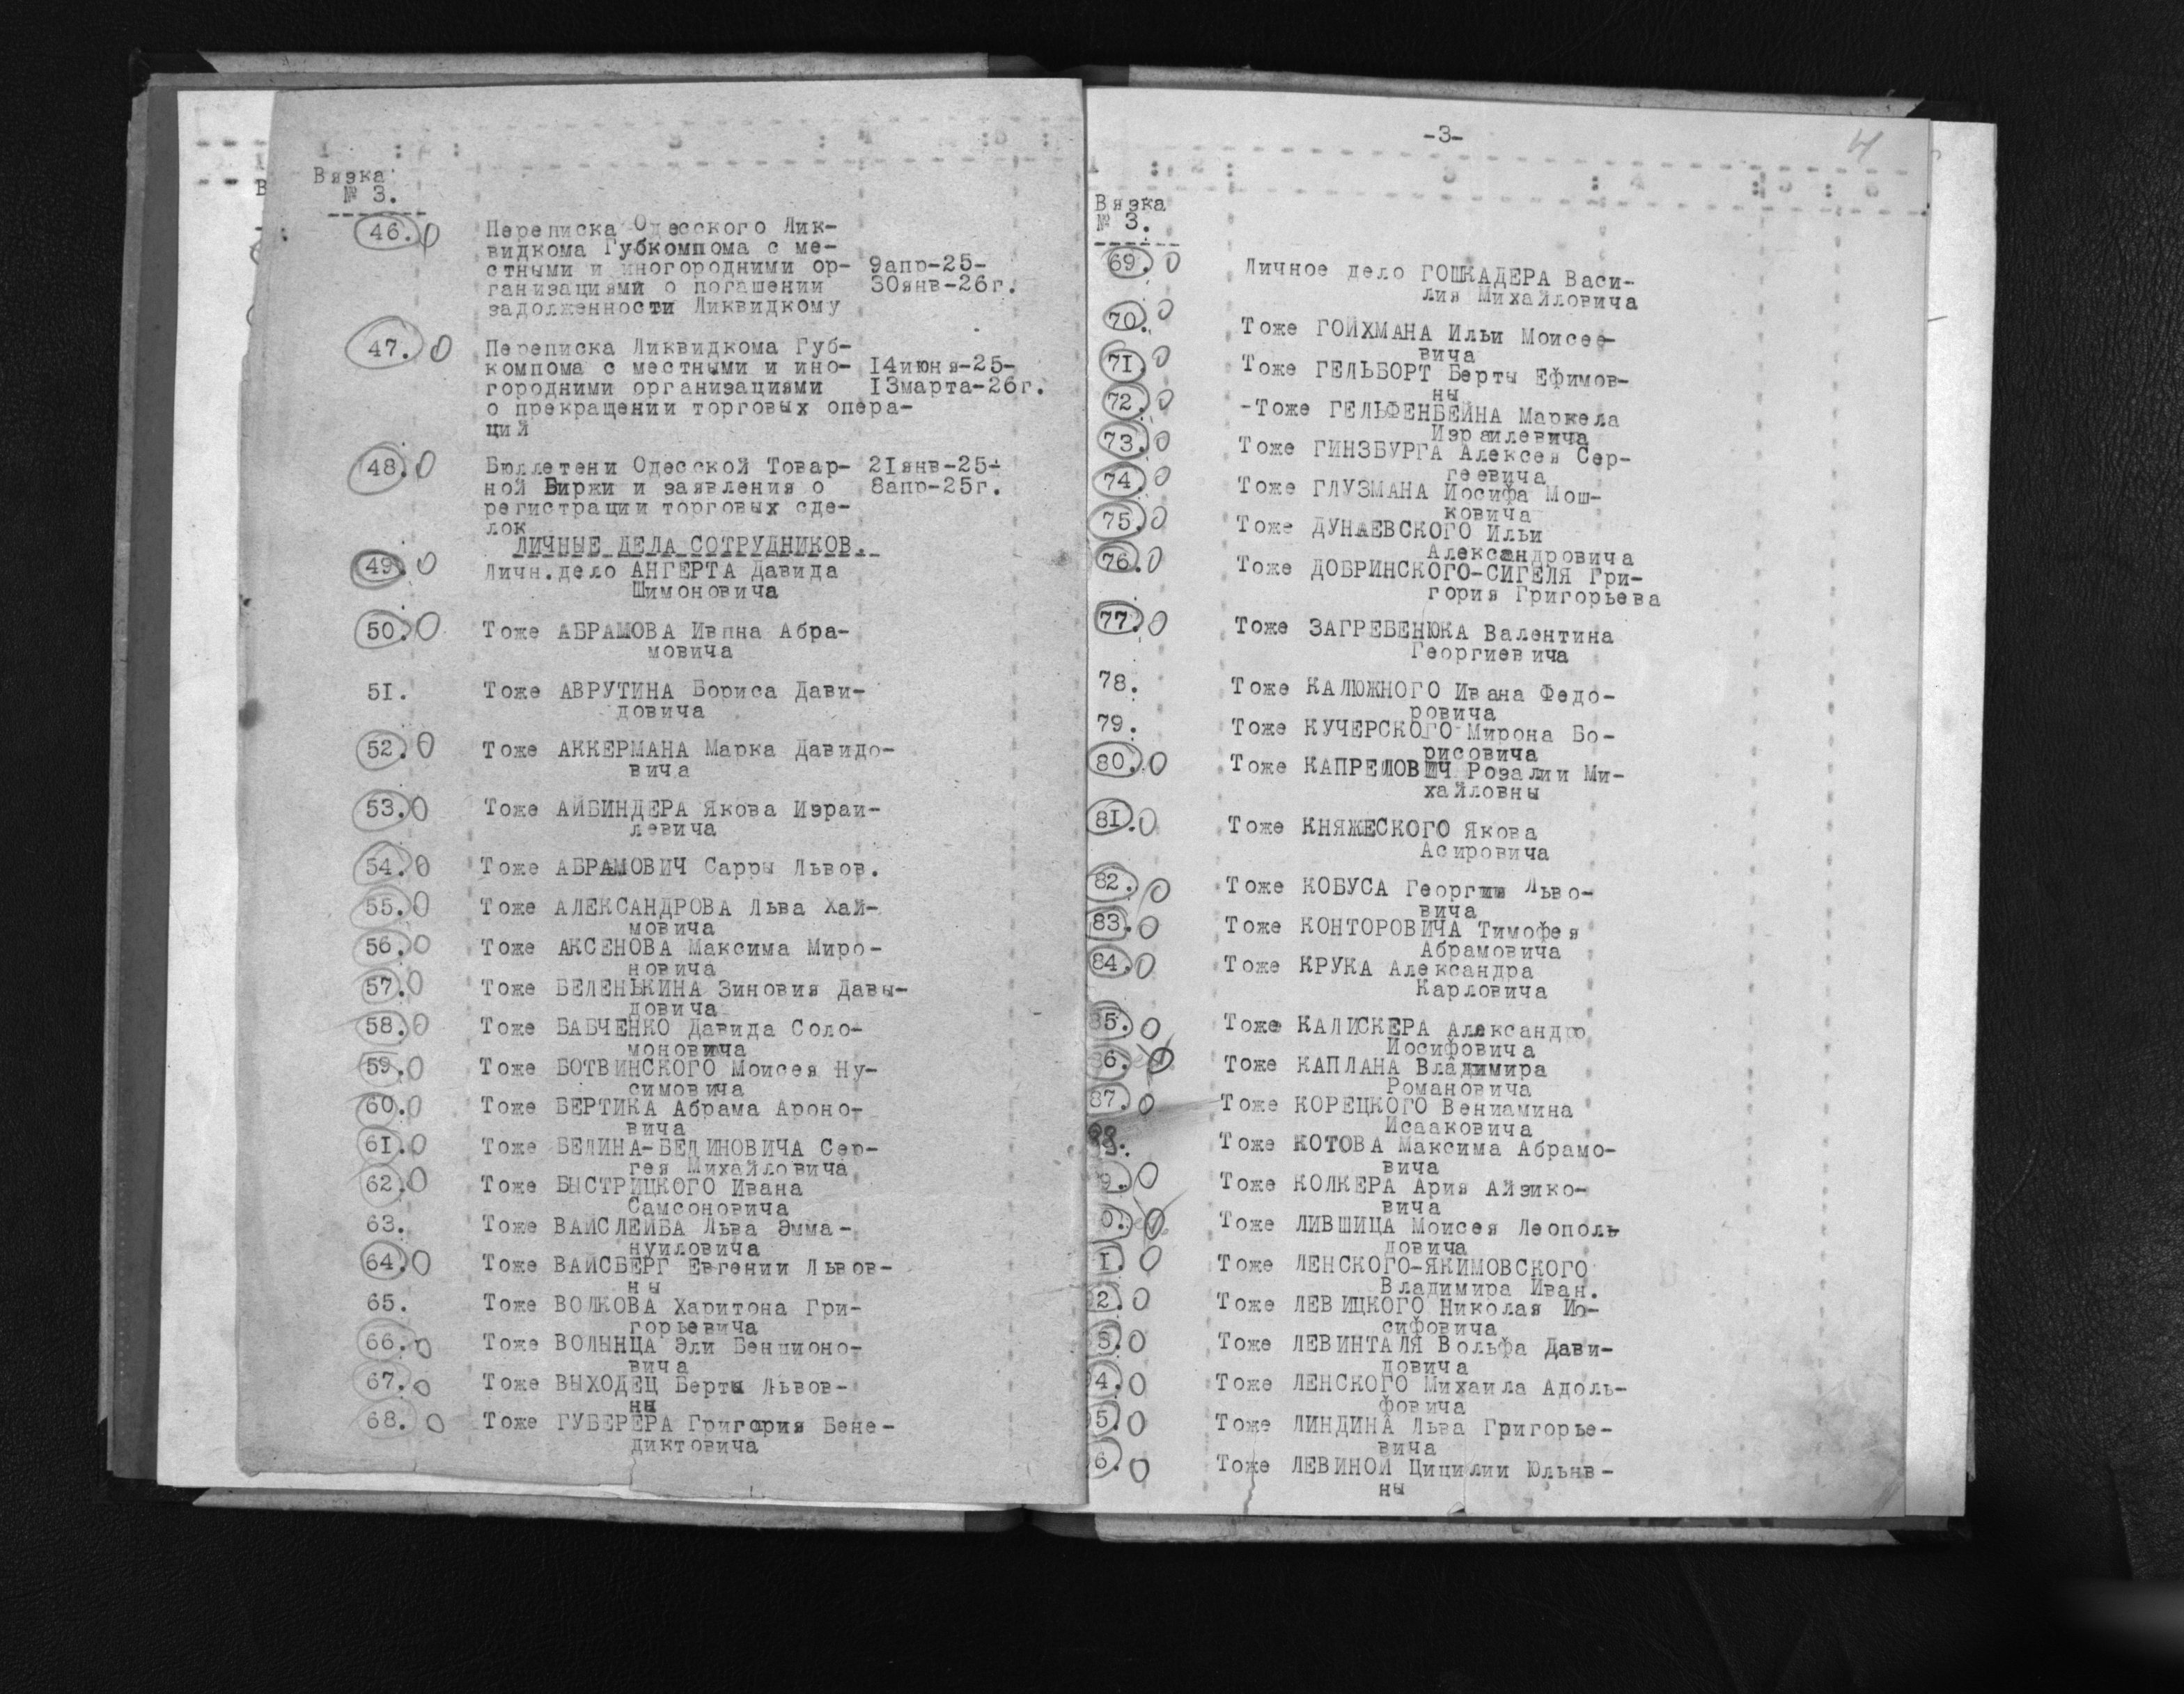 Вязка
№ 3.
46. 0 Переписка Одесского Лик-
видкома Губкомпома с ме-
стными и иногородними ор- 9апр-25-
ганизациями о погашении 30янв-26г.
задолженности Ликвидкому
47. 0 Переписка Ликвидкома Губ-
компома с местными и ино- 14июня-25-
городними организациями 13марта-26г.
о прекращении торговых опера-
ций
48. 0 Бюллетени Одесской Товар- 21янв-25-
ной Биржи и заявления о 8апр-25г.
регистрации торговых сде-
лок
ЛИЧНЫЕ ДЕЛА СОТРУДНИКОВ.
49. 0 Личн.дело АНГЕРТА Давида
Шимоновича
50. 0 Тоже АБРАМОВА Ивана Абра-
мовича
51. Тоже АВРУТИНА Бориса Дави-
довича
52. 0 Тоже АККЕРМАНА Марка Давидо-
вича
53. 0 Тоже АЙБИНДЕРА Якова Израи-
левича
54. 0 Тоже АБРАМОВИЧ Сарры Львов.
55. 0 Тоже АЛЕКСАНДРОВА Льва Хай-
мовича
56. 0 Тоже АКСЕНОВА Максима Миро-
новича
57. 0 Тоже БЕЛЕНЬКИНА Зиновия Давы-
довича
58. 0 Тоже БАБЧЕНКО Давида Соло-
моновича
59. 0 Тоже БОТВИНСКОГО Моисея Ну-
симовича
60. 0 Тоже БЕРТИКА Абрама Ароно-
вича
61. 0 Тоже БЕЛИНА-БЕЛИНОВИЧА Сер-
гея Михайловича
62. 0 Тоже БЫСТРИЦКОГО Ивана
Самсоновича
63. Тоже ВАЙСЛЕЙБА Льва Эмма-
нуиловича
64. 0 Тоже ВАЙСБЕРГ Евгении Львов-
ны
65. Тоже ВОЛКОВА Харитона Гри-
горьевича
66. 0 Тоже ВОЛЫНЦА Эли Бенционо-
вича
67. 0 Тоже ВЫХОДЕЦ Берты Львов-
ны
68. 0 Тоже ГУБЕРЕРА Григория Бене-
диктовича
-3-
4
Вязка
№ 3.
69. 0 Личное дело ГОШКАДЕРА Васи-
лия Михайловича
70. 0 Тоже ГОЙХМАНА Ильи Моисее-
вича
71. 0 Тоже ГЕЛЬБОРТ Берты Ефимов-
ны
72. 0 -Тоже ГЕЛЬФЕНБЕЙНА Маркела
Израилевича
73. 0 Тоже ГИНЗБУРГА Алексея Сер-
геевича
74. 0 Тоже ГЛУЗМАНА Иосифа Мош-
ковича
75. 0 Тоже ДУНАЕВСКОГО Ильи
Александровича
76. 0 Тоже ДОБРИНСКОГО-СИГЕЛЯ Гри-
гория Григорьева
77. 0 Тоже ЗАГРЕБЕНЮКА Валентина
Георгиевича
78. Тоже КАЛЮЖНОГО Ивана Федо-
ровича
79. Тоже КУЧЕРСКОГО Мирона Бо-
рисовича
80. 0 Тоже КАПРЕЛОВИЧ Розалии Ми-
хайловны
81. 0 Тоже КНЯЖЕСКОГО Якова
Асировича
82. 0 Тоже КОБУСА Георгия Льво-
вича
83. 0 Тоже КОНТОРОВИЧА Тимофея
Абрамовича
84. 0 Тоже КРУКА Александра
Карловича
85. 0 Тоже КАЛИСКЕРА Александро
Иосифовича
86. 0 Тоже КАПЛАНА Владимира
Романовича
87. 0 Тоже КОРЕЦКОГО Вениамина
Исааковича
88. Тоже КОТОВА Максима Абрамо-
вича
9. 0 Тоже КОЛКЕРА Ария Айзико-
вича
0. 0 Тоже ЛИВШИЦА Моисея Леополь-
довича
1. 0 Тоже ЛЕНСКОГО-ЯКИМОВСКОГО
Владимира Иван.
2. 0 Тоже ЛЕВИЦКОГО Николая Ио-
сифовича
3. 0 Тоже ЛЕВИНТАЛЯ Вольфа Дави-
довича
4. 0 Тоже ЛЕНСКОГО Михаила Адоль-
фовича
5. 0 Тоже ЛИНДИНА Льва Григорье-
вича
6. 0 Тоже ЛЕВИНОЙ Цицилии Юльнв-
ны